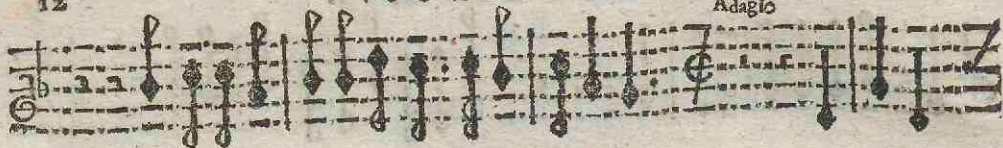 12
Adagio